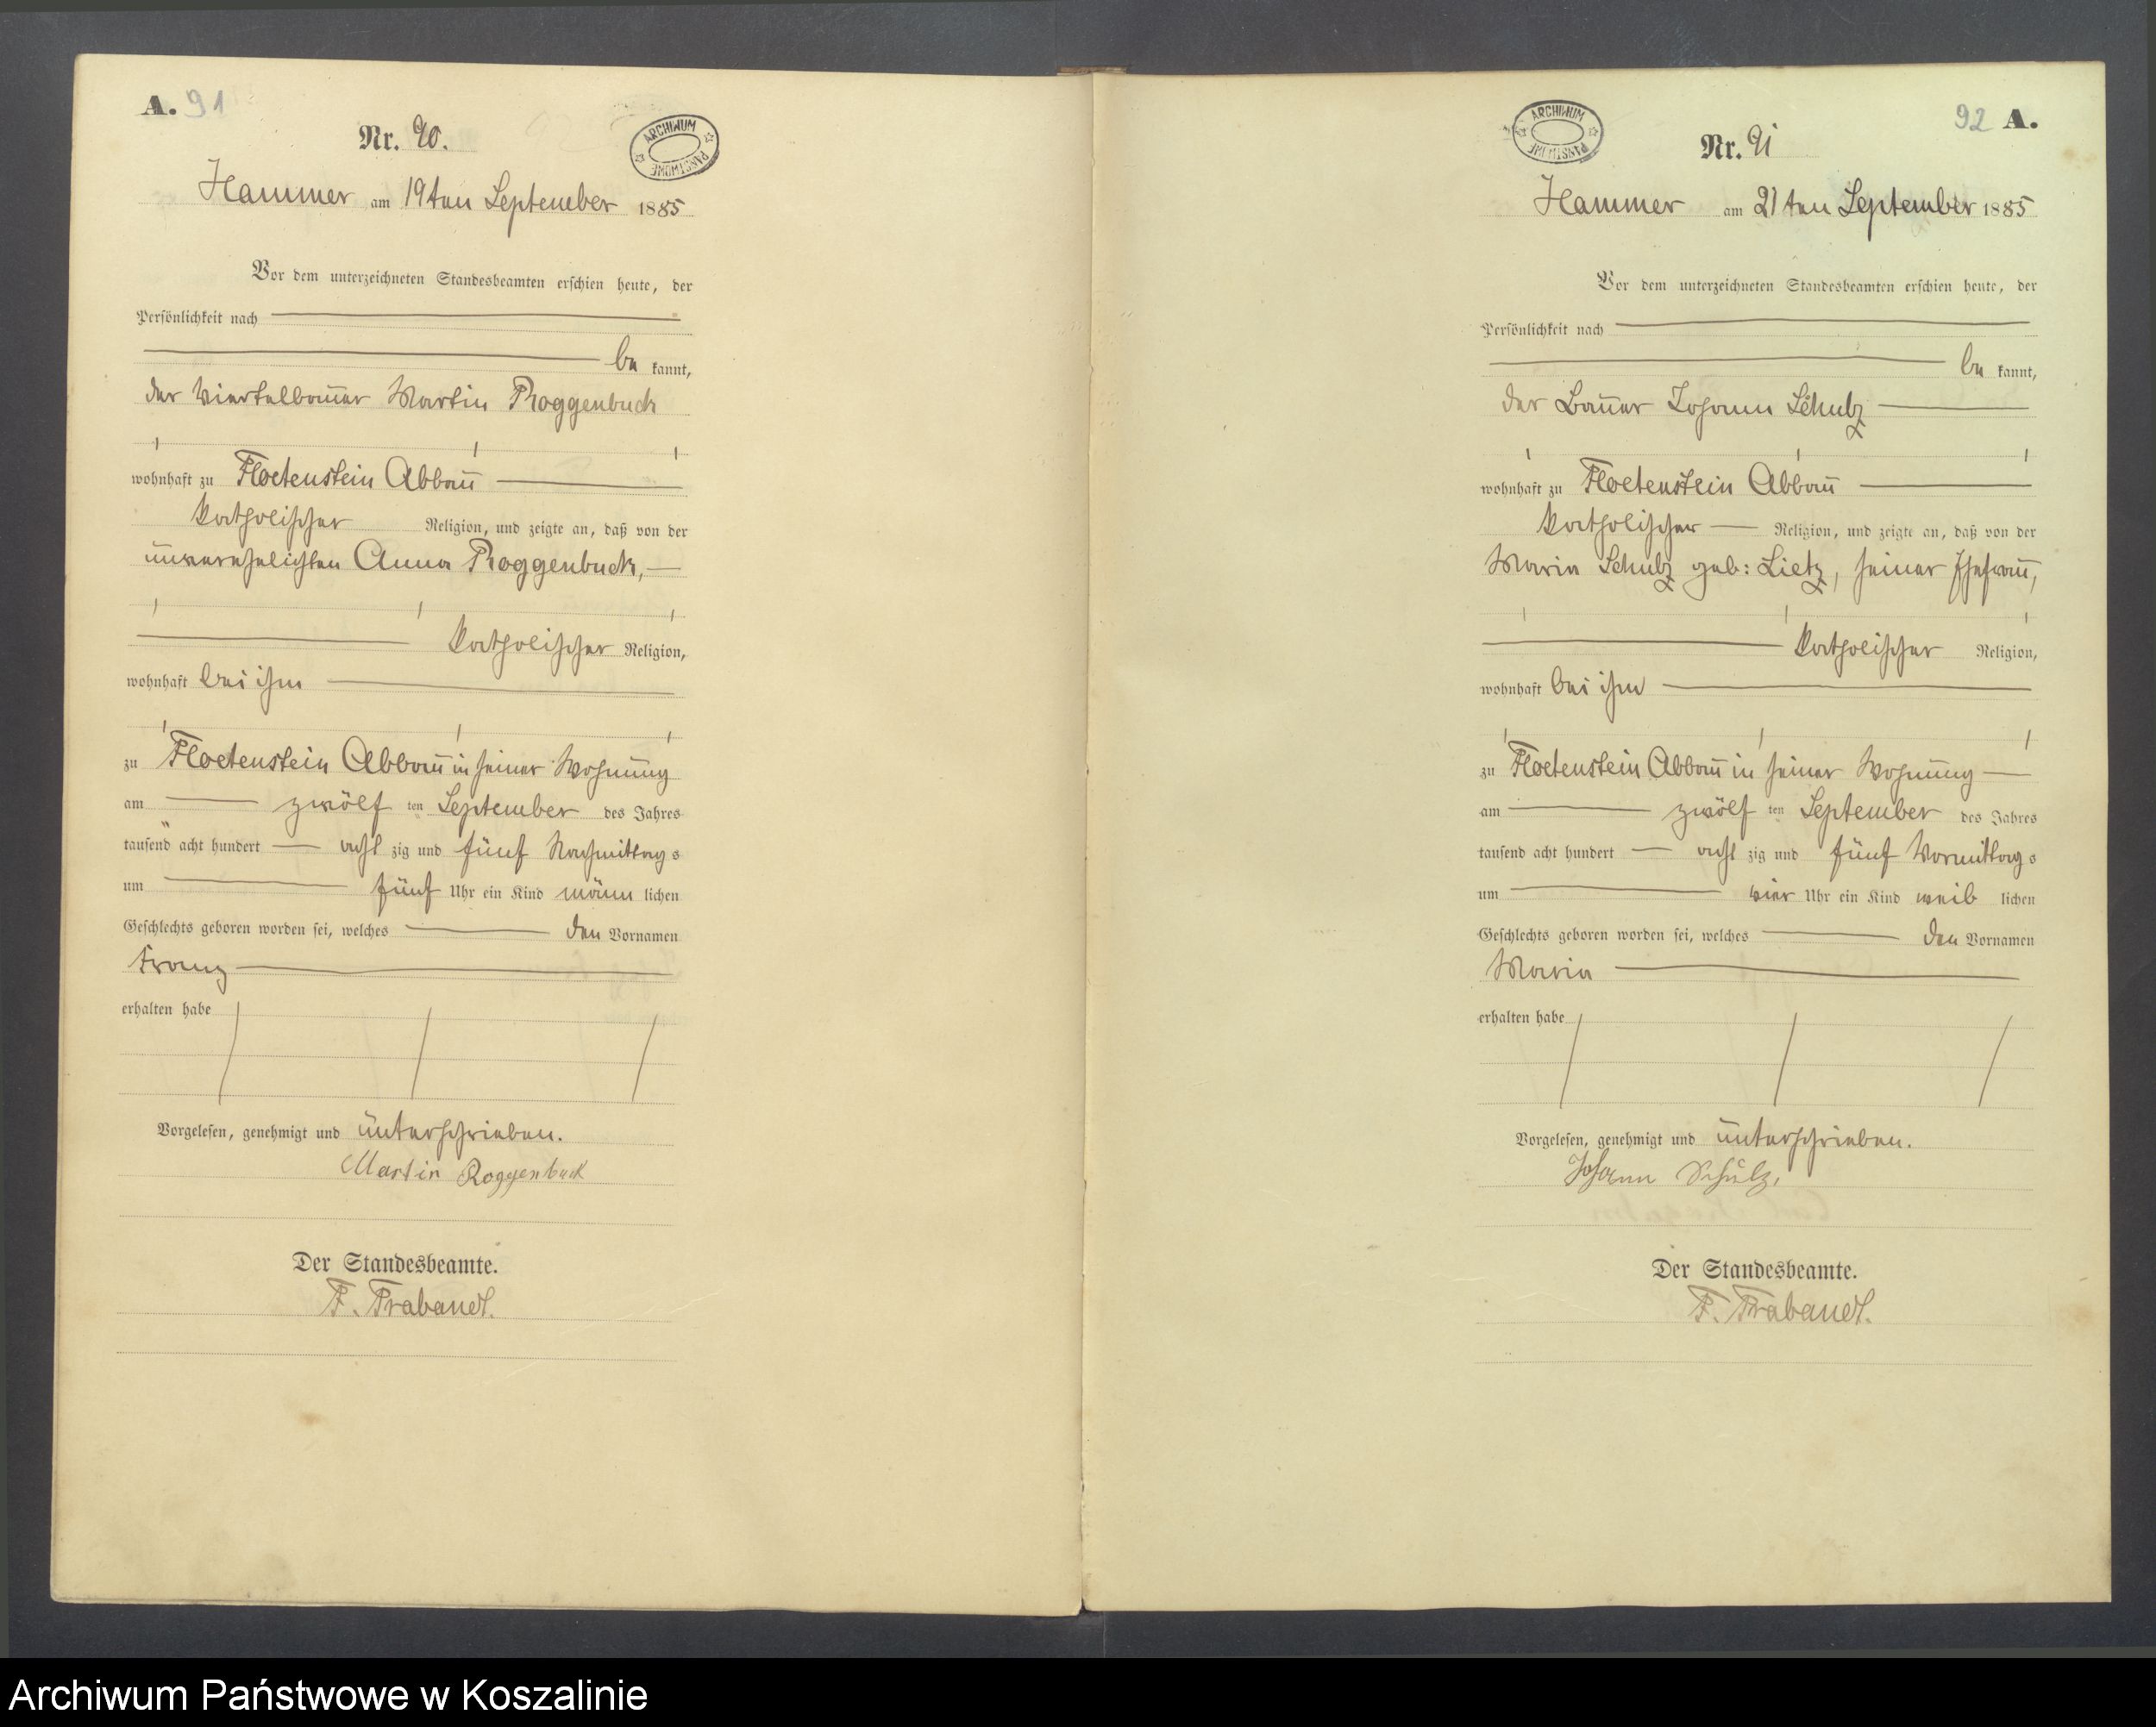 A. 91
Nr. 90.
ARCHIWUM PAŃSTWOWE
Hammer am 19ten September 1885
Vor dem unterzeichneten Standesbeamten erschien heute, der
Persönlichkeit nach
be kannt,
der Viertelbauer Martin Roggenbuck
wohnhaft zu Floetenstein Abbau
katholischer Religion, und zeigte an, daß von der
unverehelichten Anna Roggenbuck,
katholischer Religion,
wohnhaft bei ihm
zu Floetenstein Abbau in seiner Wohnung
am zwölf ten September des Jahres
tausend acht hundert acht zig und fünf Nachmittags
um fünf Uhr ein Kind männ lichen
Geschlechts geboren worden sei, welches den Vornamen
Franz
erhalten habe
Vorgelesen, genehmigt und unterschrieben.
Martin Roggenbuck
Der Standesbeamte.
F. Trabandt.
92 A.
Nr. 91
ARCHIWUM PAŃSTWOWE
Hammer am 21ten September 1885
Vor dem unterzeichneten Standesbeamten erschien heute, der
Persönlichkeit nach
be kannt,
der Bauer Johann Schulz
wohnhaft zu Floetenstein Abbau
katholischer Religion, und zeigte an, daß von der
Maria Schulz geb: Lietz, seiner Ehefrau,
katholischer Religion,
wohnhaft bei ihm
zu Floetenstein Abbau in seiner Wohnung
am zwölf ten September des Jahres
tausend acht hundert acht zig und fünf Vormittags
um vier Uhr ein Kind weib lichen
Geschlechts geboren worden sei, welches den Vornamen
Maria
erhalten habe
Vorgelesen, genehmigt und unterschrieben.
Johann Schulz,
Der Standesbeamte.
F. Trabandt.
Archiwum Państwowe w Koszalinie